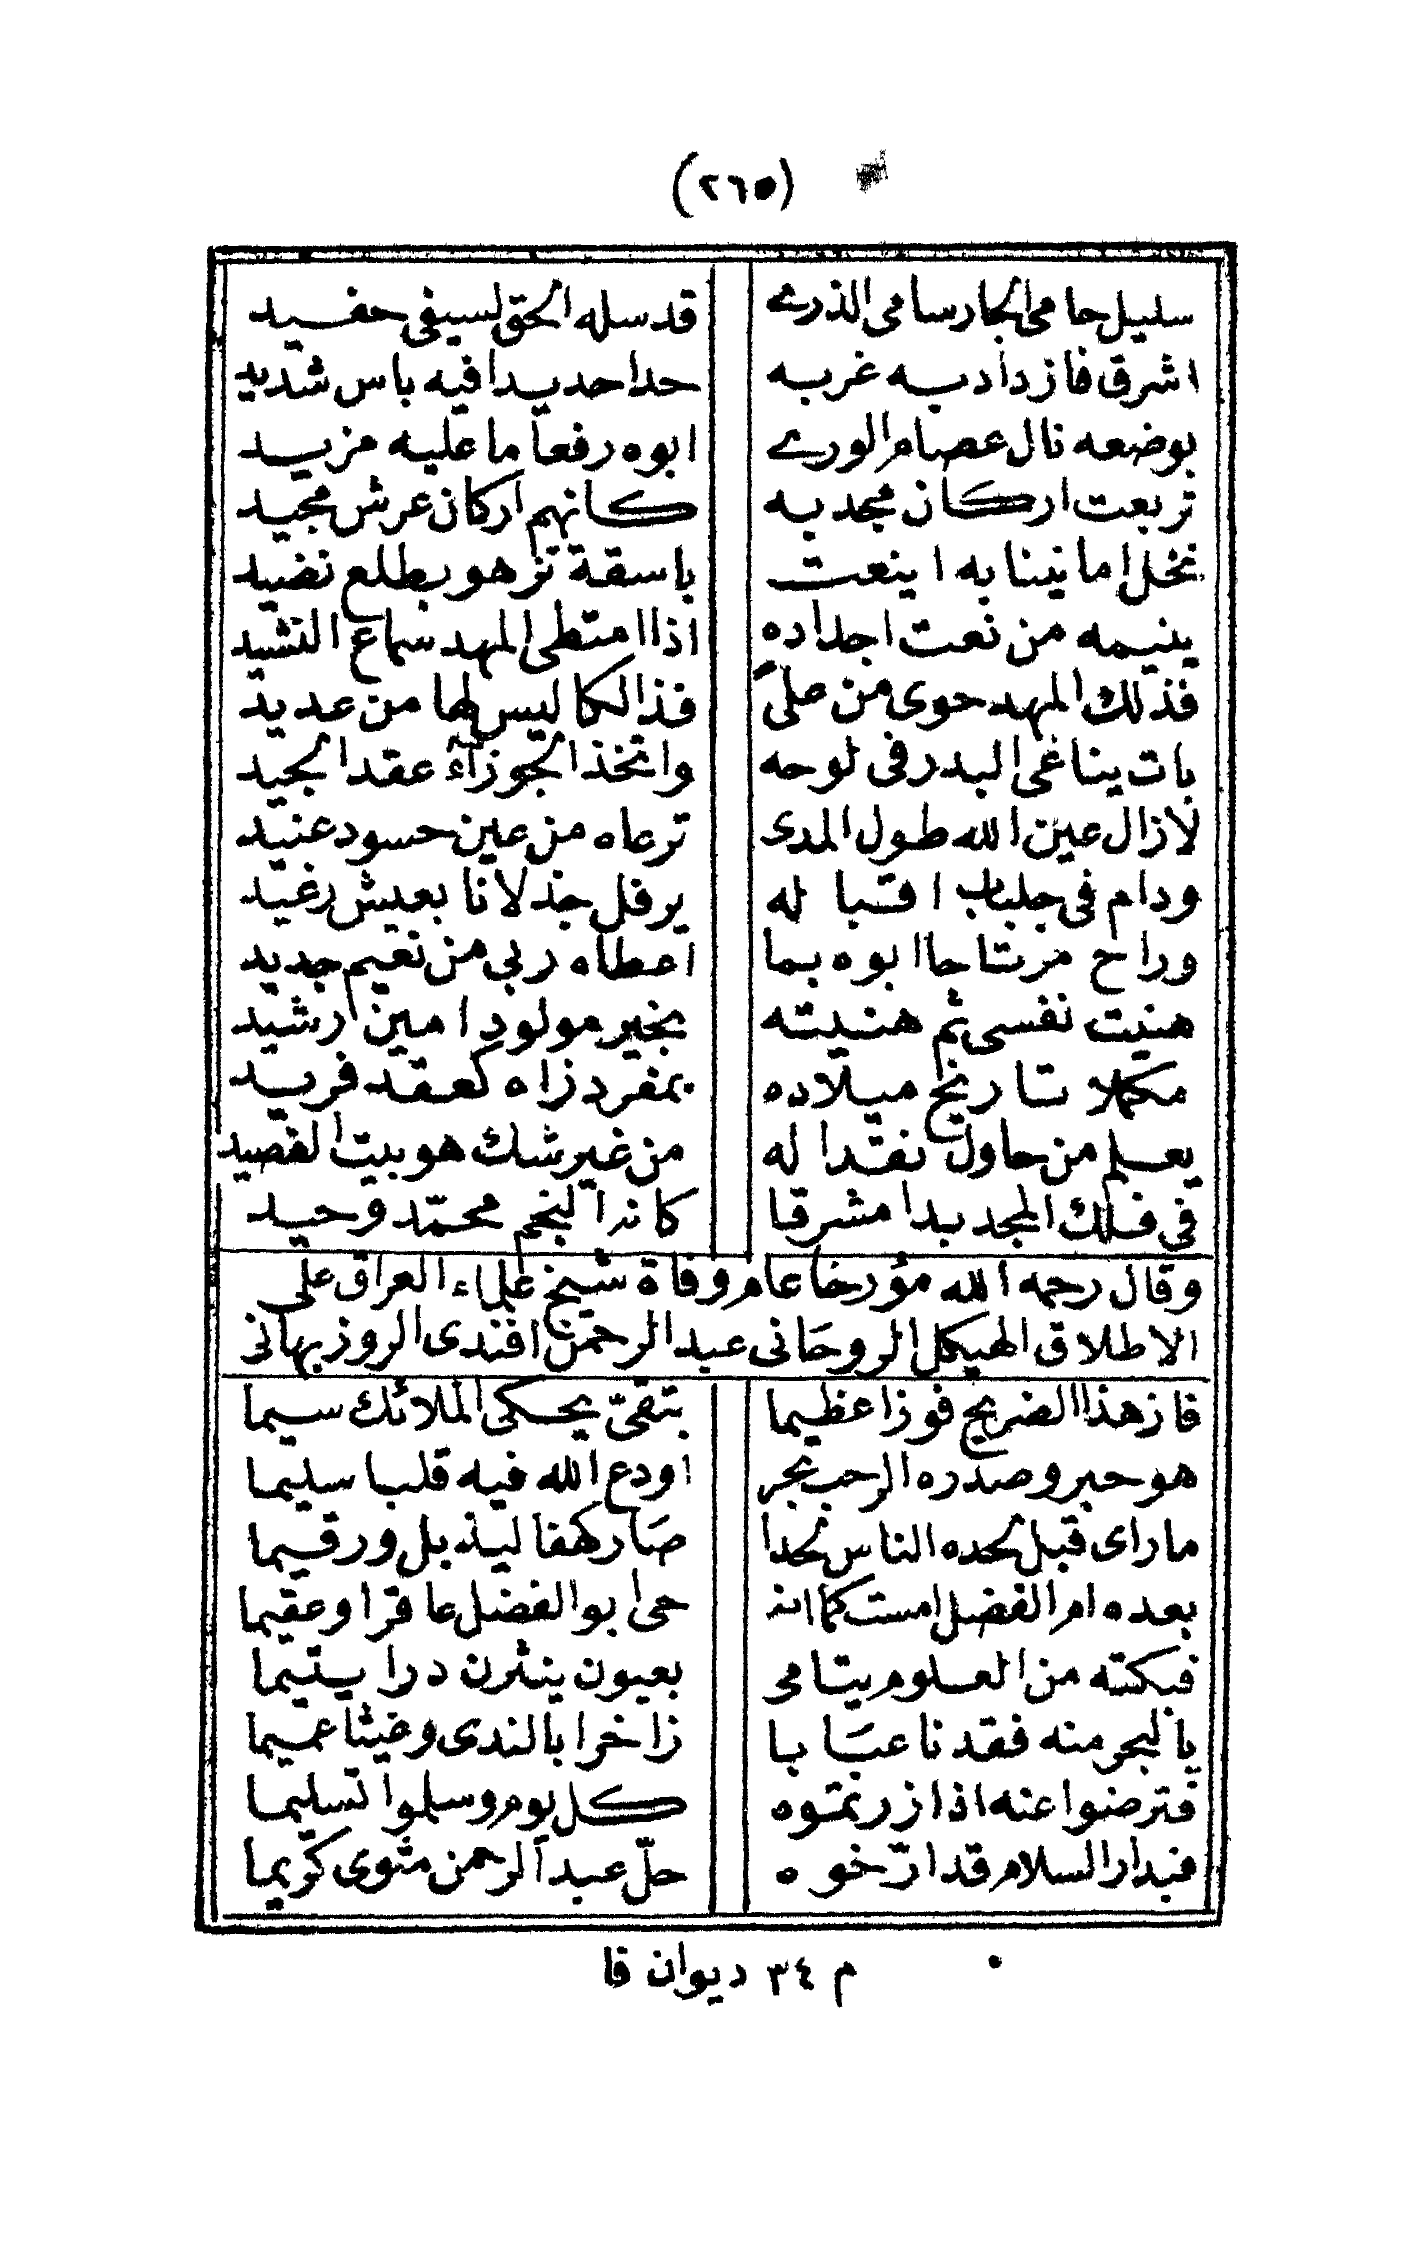 (٢٦٥)
سليل حامى الجار سامى الذرے قد سله الحق لسيفى حفيد
اشرق فازداد به غربه حدا حديدا فيه باس شديد
بوضعه نال عصام الورے ابوه رفعا ما عليه مزيد
تربعت اركان مجد به كانهم اركان عرش مجيد
نخل امانينا به اينعت باسقة تزهو بطلع نضيد
ينيمه من نعت اجداده اذا امتطى المهد سماع النشيد
فذلك المهد حوى من على فذالكا ليس لها من عديد
بات يناغى البدر فى لوحه واتخذ الجوزآء عقد الجيد
لازال عين الله طول المدى ترعاه من عين حسود عنيد
ودام فى جلباب اقباله يرفل جذلانا بعيش رغيد
وراح مرتاحا ابوه بما اعطاه ربى من نعيم جديد
هنيت نفسى ثم هنيته بخير مولود امين رشيد
مكملا تاريخ ميلاده بمفرد زاه كعقد فريد
يعلم من حاول نقدا له من غير شك هو بيت القصيد
فى فلك المجد بدا مشرقا كانه النجم محمّد وحيد
وقال رحمه الله مؤرخا عام وفاة شيخ علماء العراق على
الاطلاق الهيكل الروحانى عبد الرحمن افندى الروزبهانى
فاز هذا الضريح فوزا عظيما بتقىّ يحكى الملائك سيما
هو حبر وصدره الرحب بحر اودع الله فيه قلبا سليما
ماراى قبل لحده الناس لحدا صار كهفا ليذبل ورقيما
بعده ام الفضل امست كما انه حى ابو الفضل عاقرا وعقيما
فبكته من العلوم يتامى بعيون ينثرن درا يتيما
يالبحر منه فقدنا عبابا زاخرا بالندى وغيثا عميما
فترضوا عنه اذا زرتموه كل يوم وسلموا تسليما
فبدار السلام قد ارّخوه حلّ عبد الرحمن مثوى كريما
م ٣٤ ديوان فا